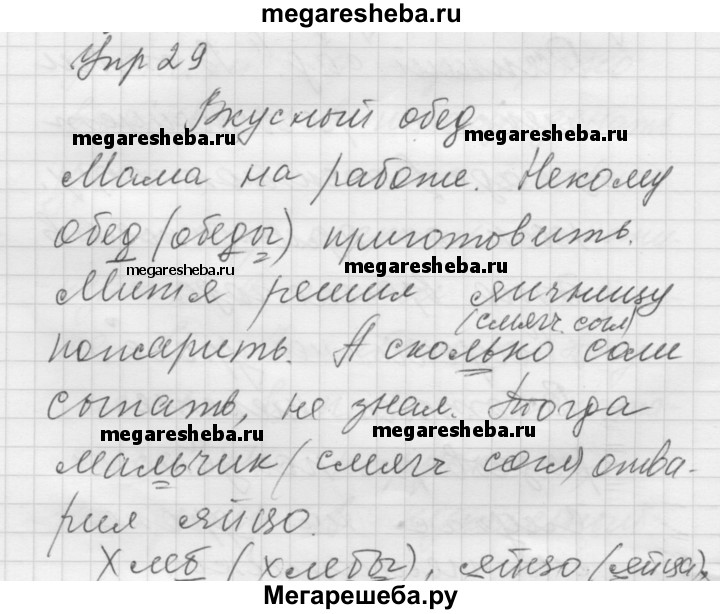 megaresheba.ru
Упр 29
Вкусный обед
megaresheba.ru megaresheba.ru
Мама на работе. Некому
обед (обеды) приготовить.
megaresheba.ru megaresheba.ru
Митя решил яичницу
(смягч. согл)
пожарить. А сколько соли
сыпать, не знал. Тогда
megaresheba.ru megaresheba.ru
мальчик (смягч согл) отва-
рил яйцо.
Хлеб (хлебы), яйцо (яйца),
Мегарешеба.ру